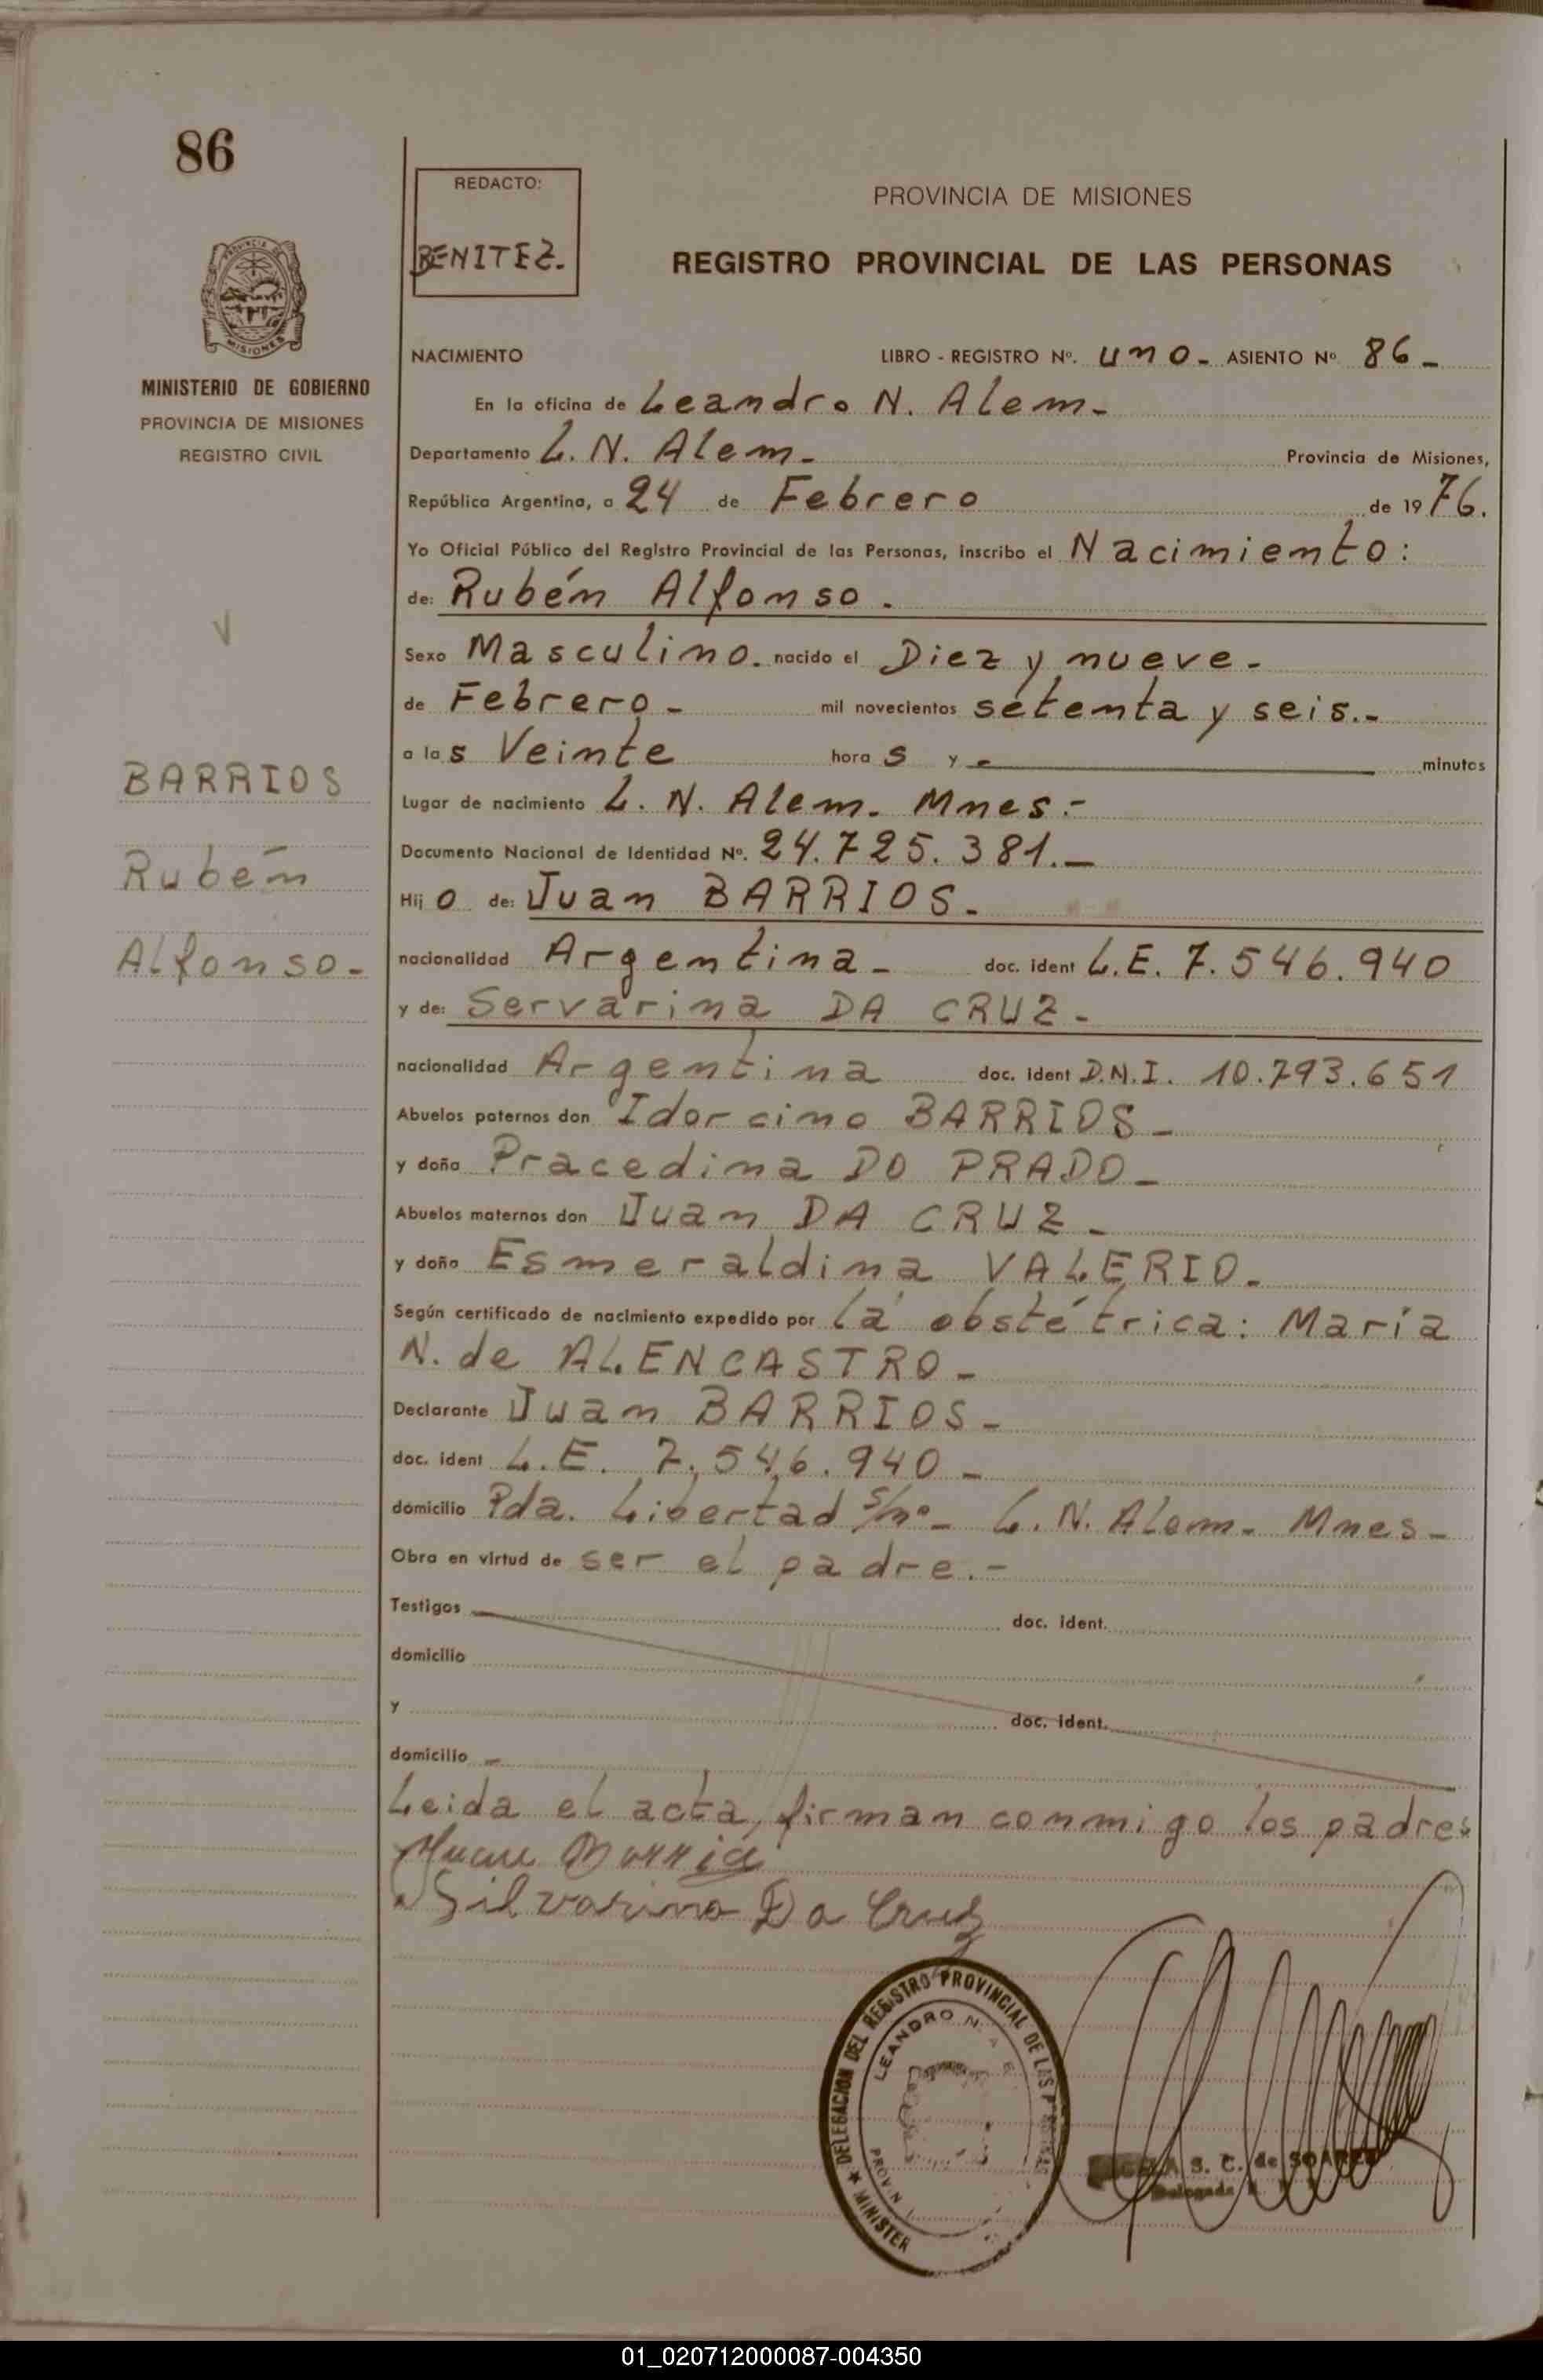 86
REDACTO:
BENITEZ.
PROVINCIA DE MISIONES
REGISTRO PROVINCIAL DE LAS PERSONAS
MISIONES
MINISTERIO DE GOBIERNO
PROVINCIA DE MISIONES
REGISTRO CIVIL
NACIMIENTO LIBRO - REGISTRO Nº. uno- ASIENTO Nº 86-
En la oficina de Leandro N. Alem-
Departamento L. N. Alem- Provincia de Misiones,
República Argentina, a 24 de Febrero de 1976.
Yo Oficial Público del Registro Provincial de las Personas, inscribo el Nacimiento:
de: Rubén Alfonso.
Sexo Masculino. nacido el Diez y nueve-
de Febrero- mil novecientos setenta y seis.-
a las Veinte horas y - minutos
Lugar de nacimiento L. N. Alem. Mnes.-
Documento Nacional de Identidad Nº. 24.725.381.-
Hijo de: Juan BARRIOS.
nacionalidad Argentina- doc. ident L.E. 7.546.940
y de: Servarina DA CRUZ-
nacionalidad Argentina doc. ident D.N.I. 10.793.651
Abuelos paternos don Idorcino BARRIOS-
y doña Pracedina DO PRADO-
Abuelos maternos don Juan DA CRUZ-
y doña Esmeraldina VALERIO.
Según certificado de nacimiento expedido por la obstétrica: María
N. de ALENCASTRO-
Declarante Juan BARRIOS-
doc. ident L.E. 7.546.940-
domicilio Pda. Libertad s/nº- L. N. Alem- Mnes-
Obra en virtud de ser el padre.-
Testigos doc. ident.
domicilio
y doc. ident.
domicilio -
Leida el acta, firman conmigo los padres
BARRIOS
Rubén
Alfonso-
Silvarina Da Cruz
DELEGACION DEL REGISTRO PROVINCIAL DE LAS
LEANDRO N.
S. C. de SOAREZ
Delegada
01_020712000087-004350